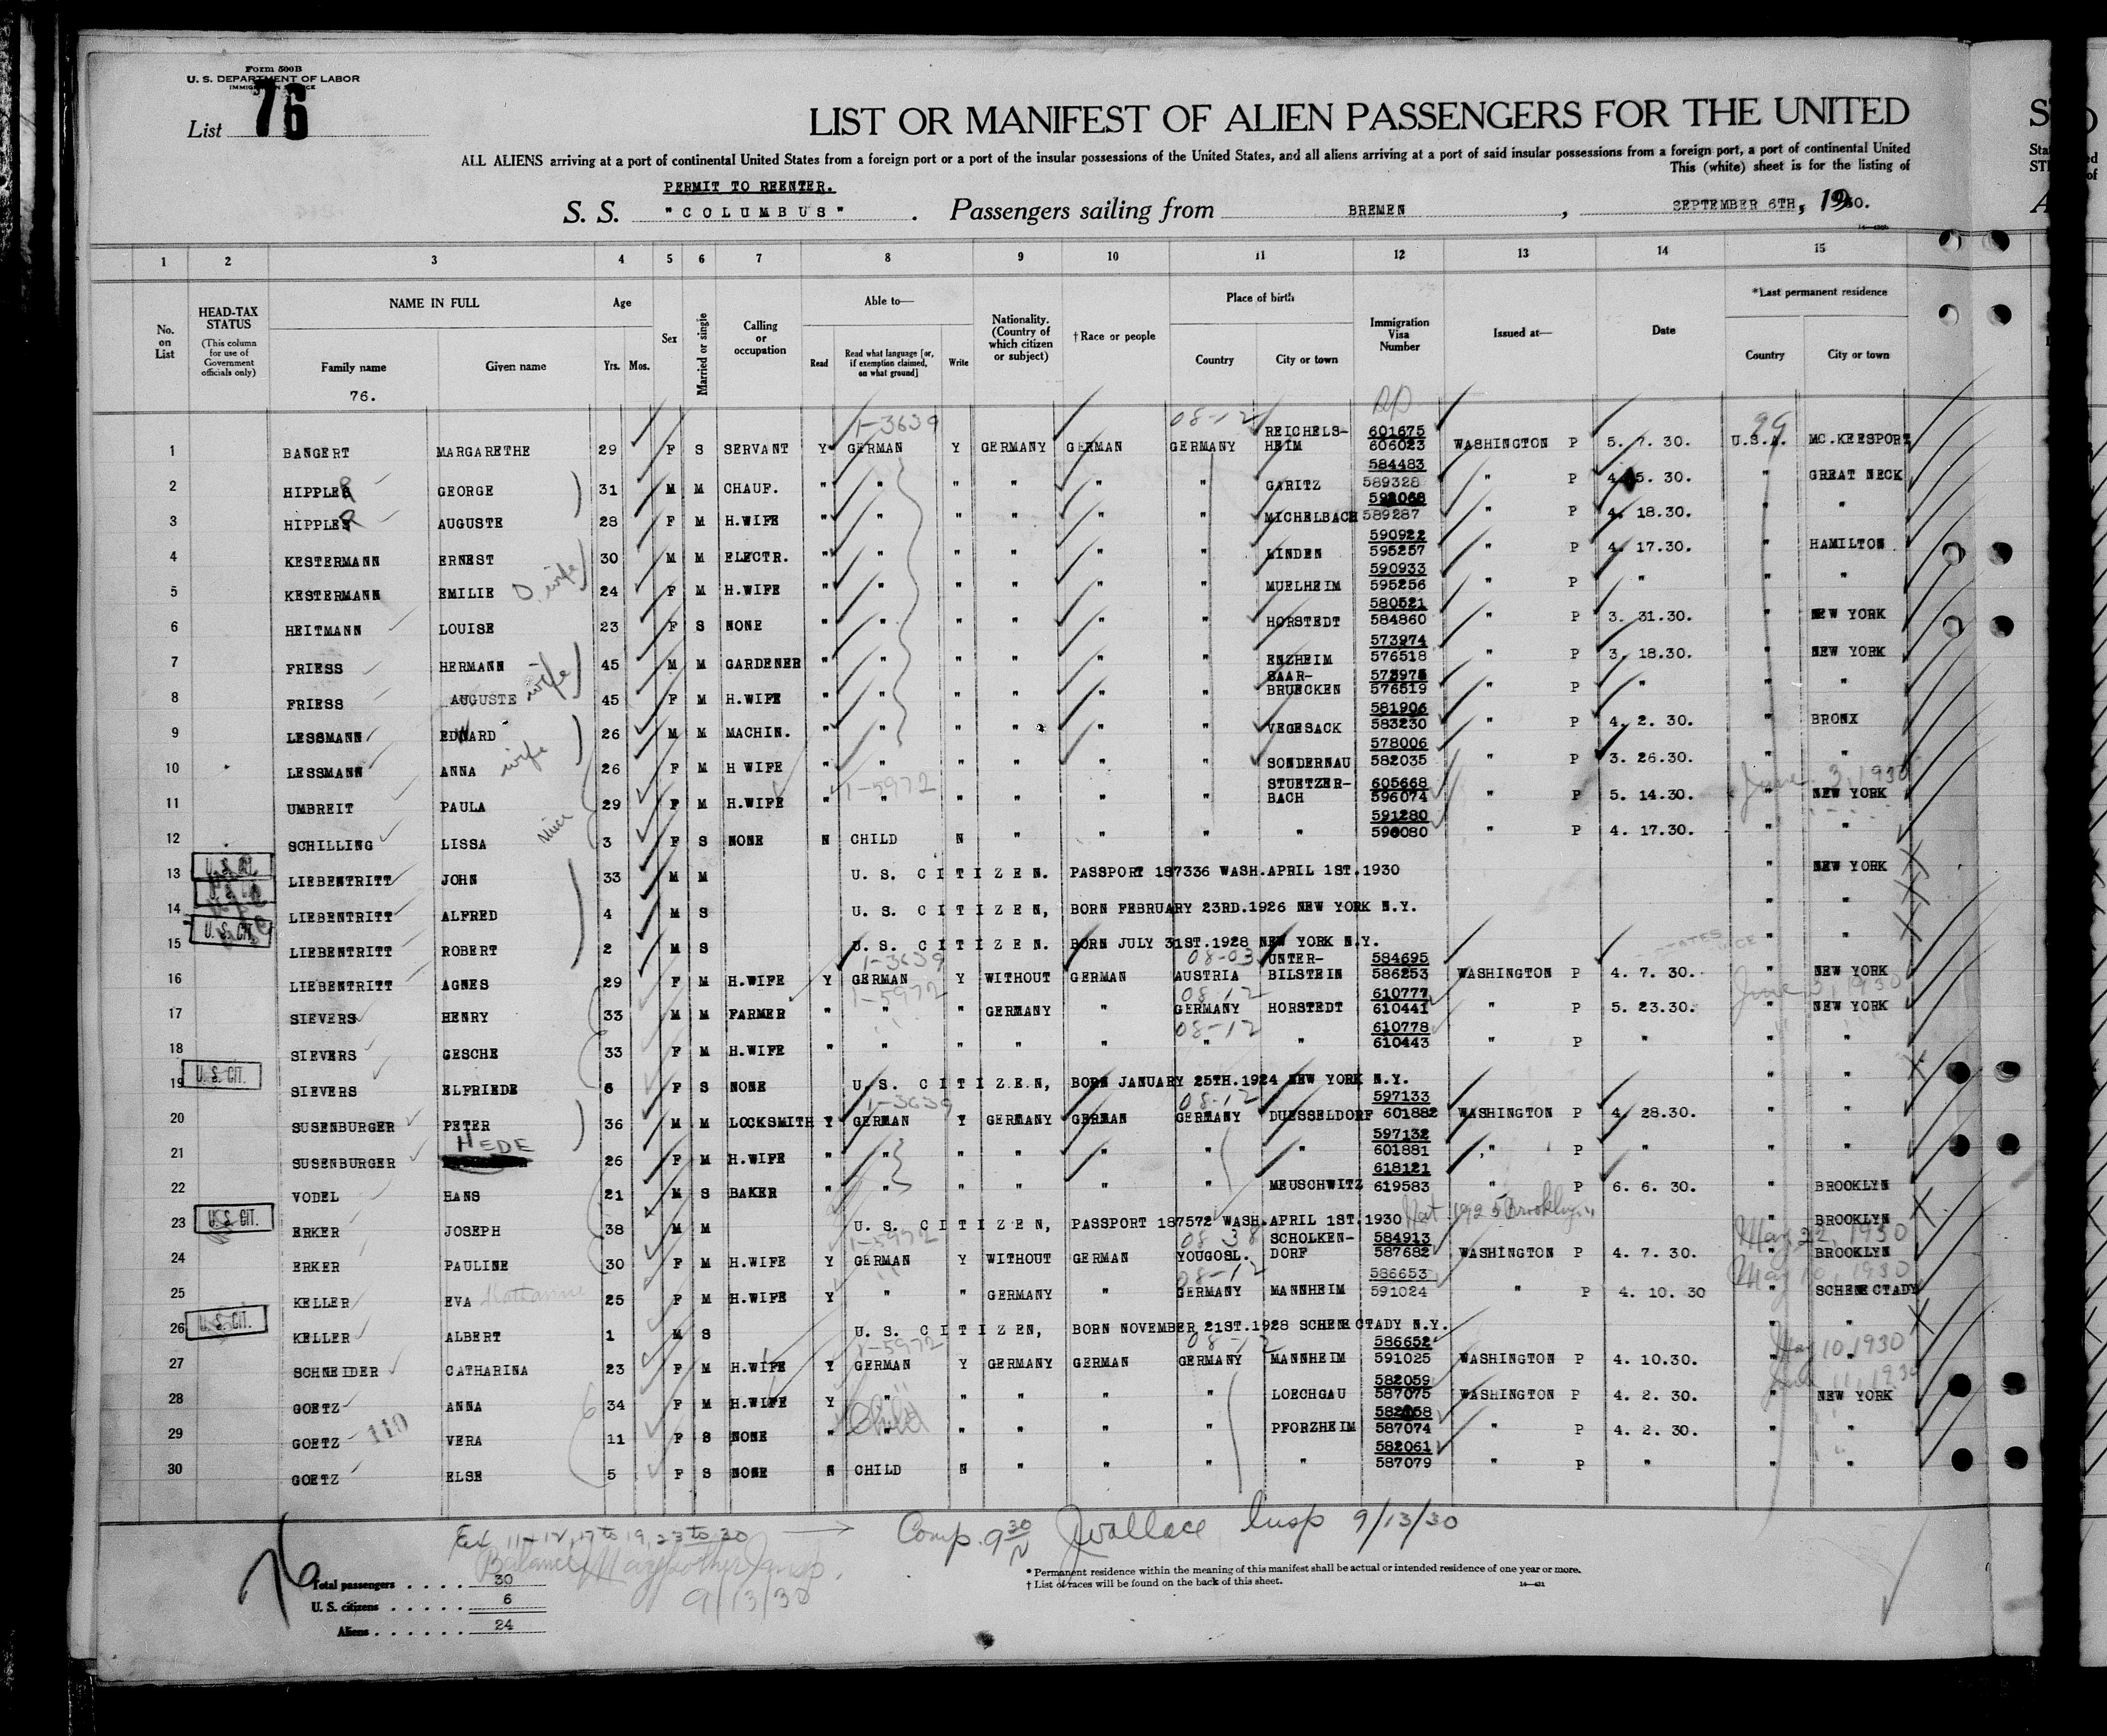 Form 500B
U. S. DEPARTMENT OF LABOR
List 76
LIST OR MANIFEST OF ALIEN PASSENGERS FOR THE UNITED
ALL ALIENS arriving at a port of continental United States from a foreign port or a port of the insular possessions of the United States, and all aliens arriving at a port of said insular possessions from a foreign port, a port of continental United
This (white) sheet is for the listing of
PERMIT TO REENTER.
S. S. "COLUMBUS". Passengers sailing from BREMEN, SEPTEMBER 6TH, 1930.
1 2 3 4 5 6 7 8 9 10 11 12 13 14 15
No. on List
HEAD-TAX STATUS (This column for use of Government officials only)
NAME IN FULL Family name Given name
Age Yrs. Mos.
Sex
Married or single
Calling or occupation
Able to— Read Read what language [or, if exemption claimed, on what ground] Write
Nationality. (Country of which citizen or subject)
†Race or people
Place of birth Country City or town
Immigration Visa Number
Issued at—
Date
*Last permanent residence Country City or town
76.
1-3639 08-12 99
1 BANGERT MARGARETHE 29 F S SERVANT Y GERMAN Y GERMANY GERMAN GERMANY REICHELS-HEIM 601675 606023 WASHINGTON P 5. 7. 30. U.S.A. MC.KEESPORT
2 HIPPLER GEORGE 31 M M CHAUF. " " " " " " GARITZ 584483 589328 " P 4. 5. 30. " GREAT NECK
3 HIPPLER AUGUSTE 28 F M H.WIFE " " " " " " MICHELBACH 592068 589287 " P 4. 18.30. " "
4 KESTERMANN ERNEST 30 M M ELECTR. " " " " " " LINDEN 590922 595257 " P 4. 17.30. " HAMILTON
5 KESTERMANN EMILIE wife 24 F M H.WIFE " " " " " " MUELHEIM 590933 595256 " P " " "
6 HEITMANN LOUISE 23 F S NONE " " " " " " HORSTEDT 580521 584860 " P 3. 31.30. " NEW YORK
7 FRIESS HERMANN 45 M M GARDENER " " " " " " ENZHEIM 573974 576518 " P 3. 18.30. " NEW YORK
8 FRIESS AUGUSTE wife 45 F M H.WIFE " " " " " " SAAR-BRUECKEN 573975 576519 " P " " "
9 LESSMANN EDWARD 26 M M MACHIN. " " " " " " VEGESACK 581906 583230 " P 4. 2. 30. " BRONX
10 LESSMANN ANNA wife 26 F M H WIFE " " " " " " SONDERNAU 578006 582035 " P 3. 26.30. " "
1-5972 June 3, 1930
11 UMBREIT PAULA 29 F M H.WIFE " " " " " " STUETZER-BACH 605668 596074 " P 5. 14.30. " NEW YORK
12 SCHILLING LISSA niece 3 F S NONE N CHILD N " " " " 591280 596080 " P 4. 17.30. " "
13 U. S. CIT. LIEBENTRITT JOHN 33 M M U. S. CITIZEN. PASSPORT 187336 WASH.APRIL 1ST.1930 " NEW YORK
14 LIEBENTRITT ALFRED 4 M S U. S. CITIZEN, BORN FEBRUARY 23RD.1926 NEW YORK N.Y. " "
15 U. S. CIT. LIEBENTRITT ROBERT 2 M S U. S. CITIZEN. BORN JULY 31ST.1928 NEW YORK N.Y. " "
1-3639 08-03
16 LIEBENTRITT AGNES 29 F M H.WIFE Y GERMAN Y WITHOUT GERMAN AUSTRIA UNTER-BILSTEIN 584695 586253 WASHINGTON P 4. 7. 30. " NEW YORK
1-5972 08-12 June 3, 1930
17 SIEVERS HENRY 33 M M FARMER " " " GERMANY " GERMANY HORSTEDT 610777 610441 " P 5. 23.30. " NEW YORK
08-12
18 SIEVERS GESCHE 33 F M H.WIFE " " " " " " " 610778 610443 " P " " "
19 U. S. CIT. SIEVERS ELFRIEDE 6 F S NONE U. S. CITIZEN, BORN JANUARY 25TH.1924 NEW YORK N.Y. " "
1-3639 08-12
20 SUSENBURGER PETER 36 M M LOCKSMITH Y GERMAN Y GERMANY GERMAN GERMANY DUESSELDORF 597133 601882 WASHINGTON P 4. 28.30. " "
21 SUSENBURGER HEDE 26 F M H.WIFE " " " " " " " 597132 601881 " P " " "
22 VODEL HANS 21 M S BAKER " " " " " " MEUSCHWITZ 618121 619583 " P 6. 6. 30. " BROOKLYN
23 U. S. CIT. ERKER JOSEPH 38 M M U. S. CITIZEN, PASSPORT 187572 WASH.APRIL 1ST.1930 Nat. 1925 Brooklyn " BROOKLYN
1-5972 08 38 May 22, 1930
24 ERKER PAULINE 30 F M H.WIFE Y GERMAN Y WITHOUT GERMAN YOUGOSL. SCHOLKEN-DORF 584913 587682 WASHINGTON P 4. 7. 30. " BROOKLYN
08-12 May 10, 1930
25 KELLER EVA Katharine 25 F M H.WIFE Y " " GERMANY " GERMANY MANNHEIM 586653 591024 " P 4. 10. 30 " SCHENECTADY
26 U. S. CIT. KELLER ALBERT 1 M S U. S. CITIZEN, BORN NOVEMBER 21ST.1928 SCHENECTADY N.Y. " "
1-5972 08-12 May 10 1930
27 SCHNEIDER CATHARINA 23 F M H.WIFE Y GERMAN Y GERMANY GERMAN GERMANY MANNHEIM 586652 591025 WASHINGTON P 4. 10.30. " "
28 GOETZ ANNA 34 F M H.WIFE Y " " " " " LOECHGAU 582059 587075 WASHINGTON P 4. 2. 30. " NEW YORK
29 GOETZ 110 VERA 11 F S NONE " Child " " " " PFORZHEIM 587074 " P 4. 2. 30. " "
30 GOETZ ELSE 5 F S NONE N CHILD N " " " " 582061 587079 " P " " "
Ex 11+12, 17 to 19, 23 to 30 Comp. 9 30 JWallace Insp 9/13/30
Balance
9/13/30
Total passengers . . . . 30
U. S. citizens . . . . . 6
Aliens . . . . . . 24
* Permanent residence within the meaning of this manifest shall be actual or intended residence of one year or more.
† List of races will be found on the back of this sheet.